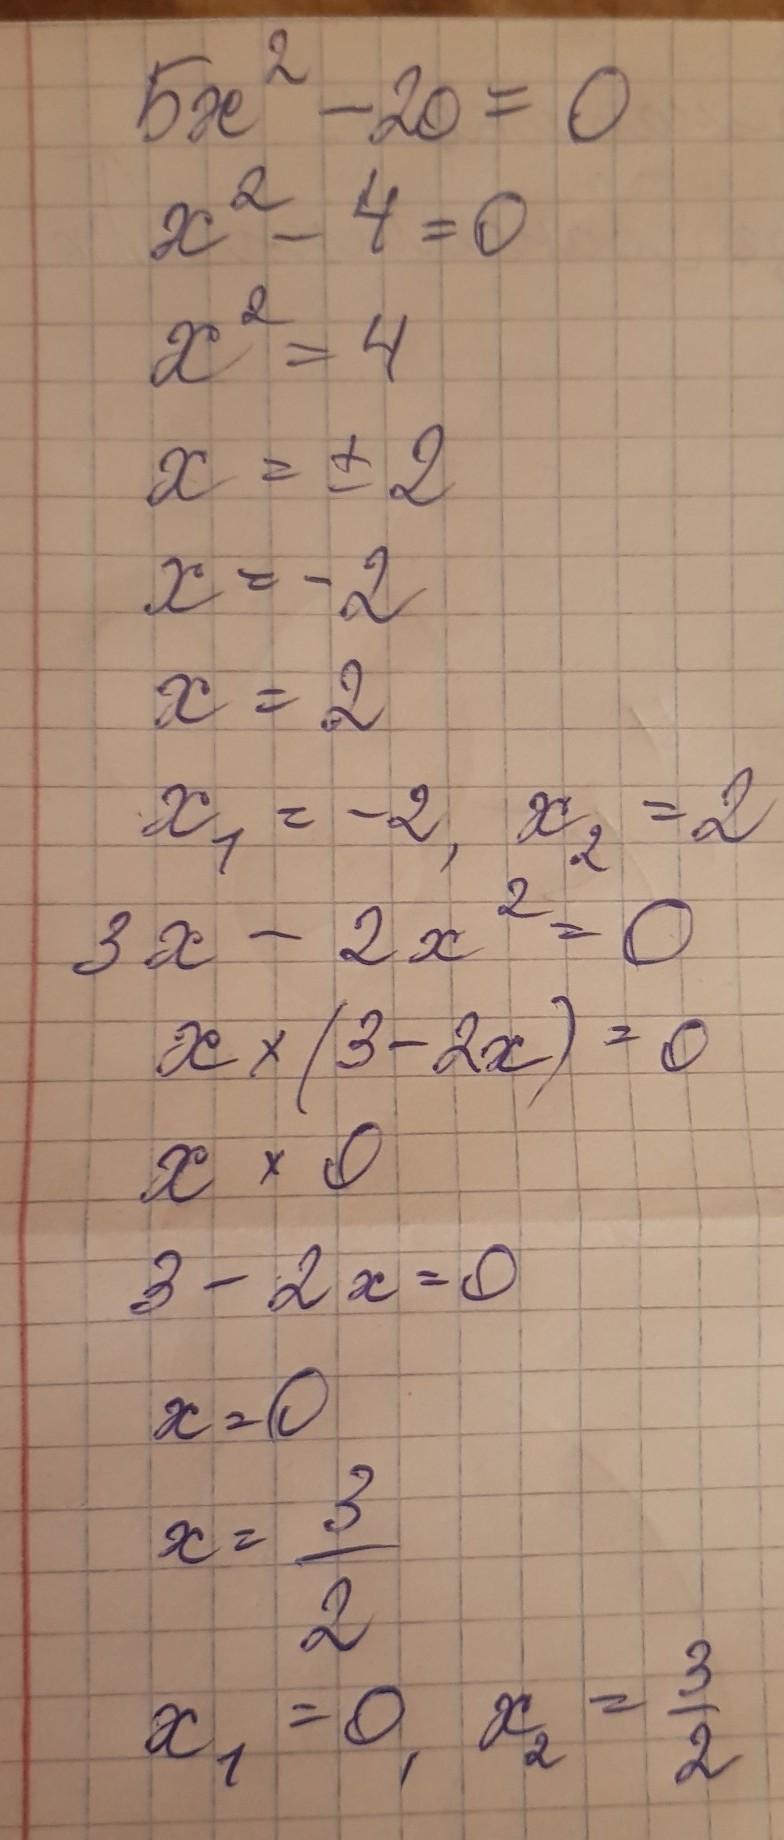 5x² - 20 = 0
x² - 4 = 0
x² = 4
x = ± 2
x = -2
x = 2
x₁ = -2, x₂ = 2
3x - 2x² = 0
x × (3 - 2x) = 0
x × 0
3 - 2x = 0
x = 0
x = 3/2
x₁ = 0, x₂ = 3/2